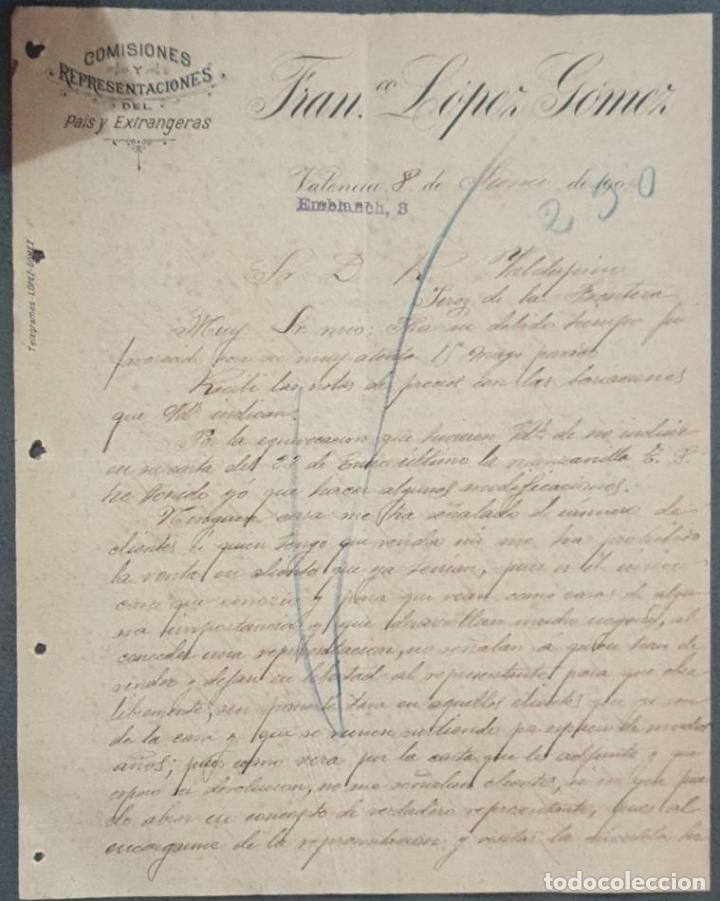 COMISIONES
Y
REPRESENTACIONES
DEL
País y Extrangeras
Fran.co López Gómez
Valencia 8 de Junio de 190
Emblanch, 3
290
Telegramas: LÓPEZ-GÓMEZ
Sr. D. R. Valdespino
Jerez de la Frontera
Muy Sr. mio: Ha su debido tiempo fui
favorecido con su muy atenta 15 Mayo pasado
Recibí las notas de precios con las variaciones
que Vds indican.
Por la equivocacion que tuvieron Vds de no indicar
en su carta del 22 de Enero último la manzanilla E. P.
he tenido yó que hacer algunas modificaciones.
Ninguna casa me ha señalado el número de
clientes á quien tengo que vender ni me ha prohibido
la venta en clientes que ya tenian, pues es el único
caso que conozco y para que vean como casas de algu
na importancia y que desarrollan mucho negocio, al
conceder una representacion, no señalan á quien han de
vender y dejan en libertad al representante para que obre
libremente, sin ponerle tasa en aquellos clientes que ya son
de la casa y que se vienen surtiendo por espacio de muchos
años; pues como verá por la carta que le adjunto y que
espero su devolucion, no me señalan clientes, si no que pue
do obrar en concepto de verdadero representante, pues al
encargarme de la representacion y visitar la clientela he
todocoleccion